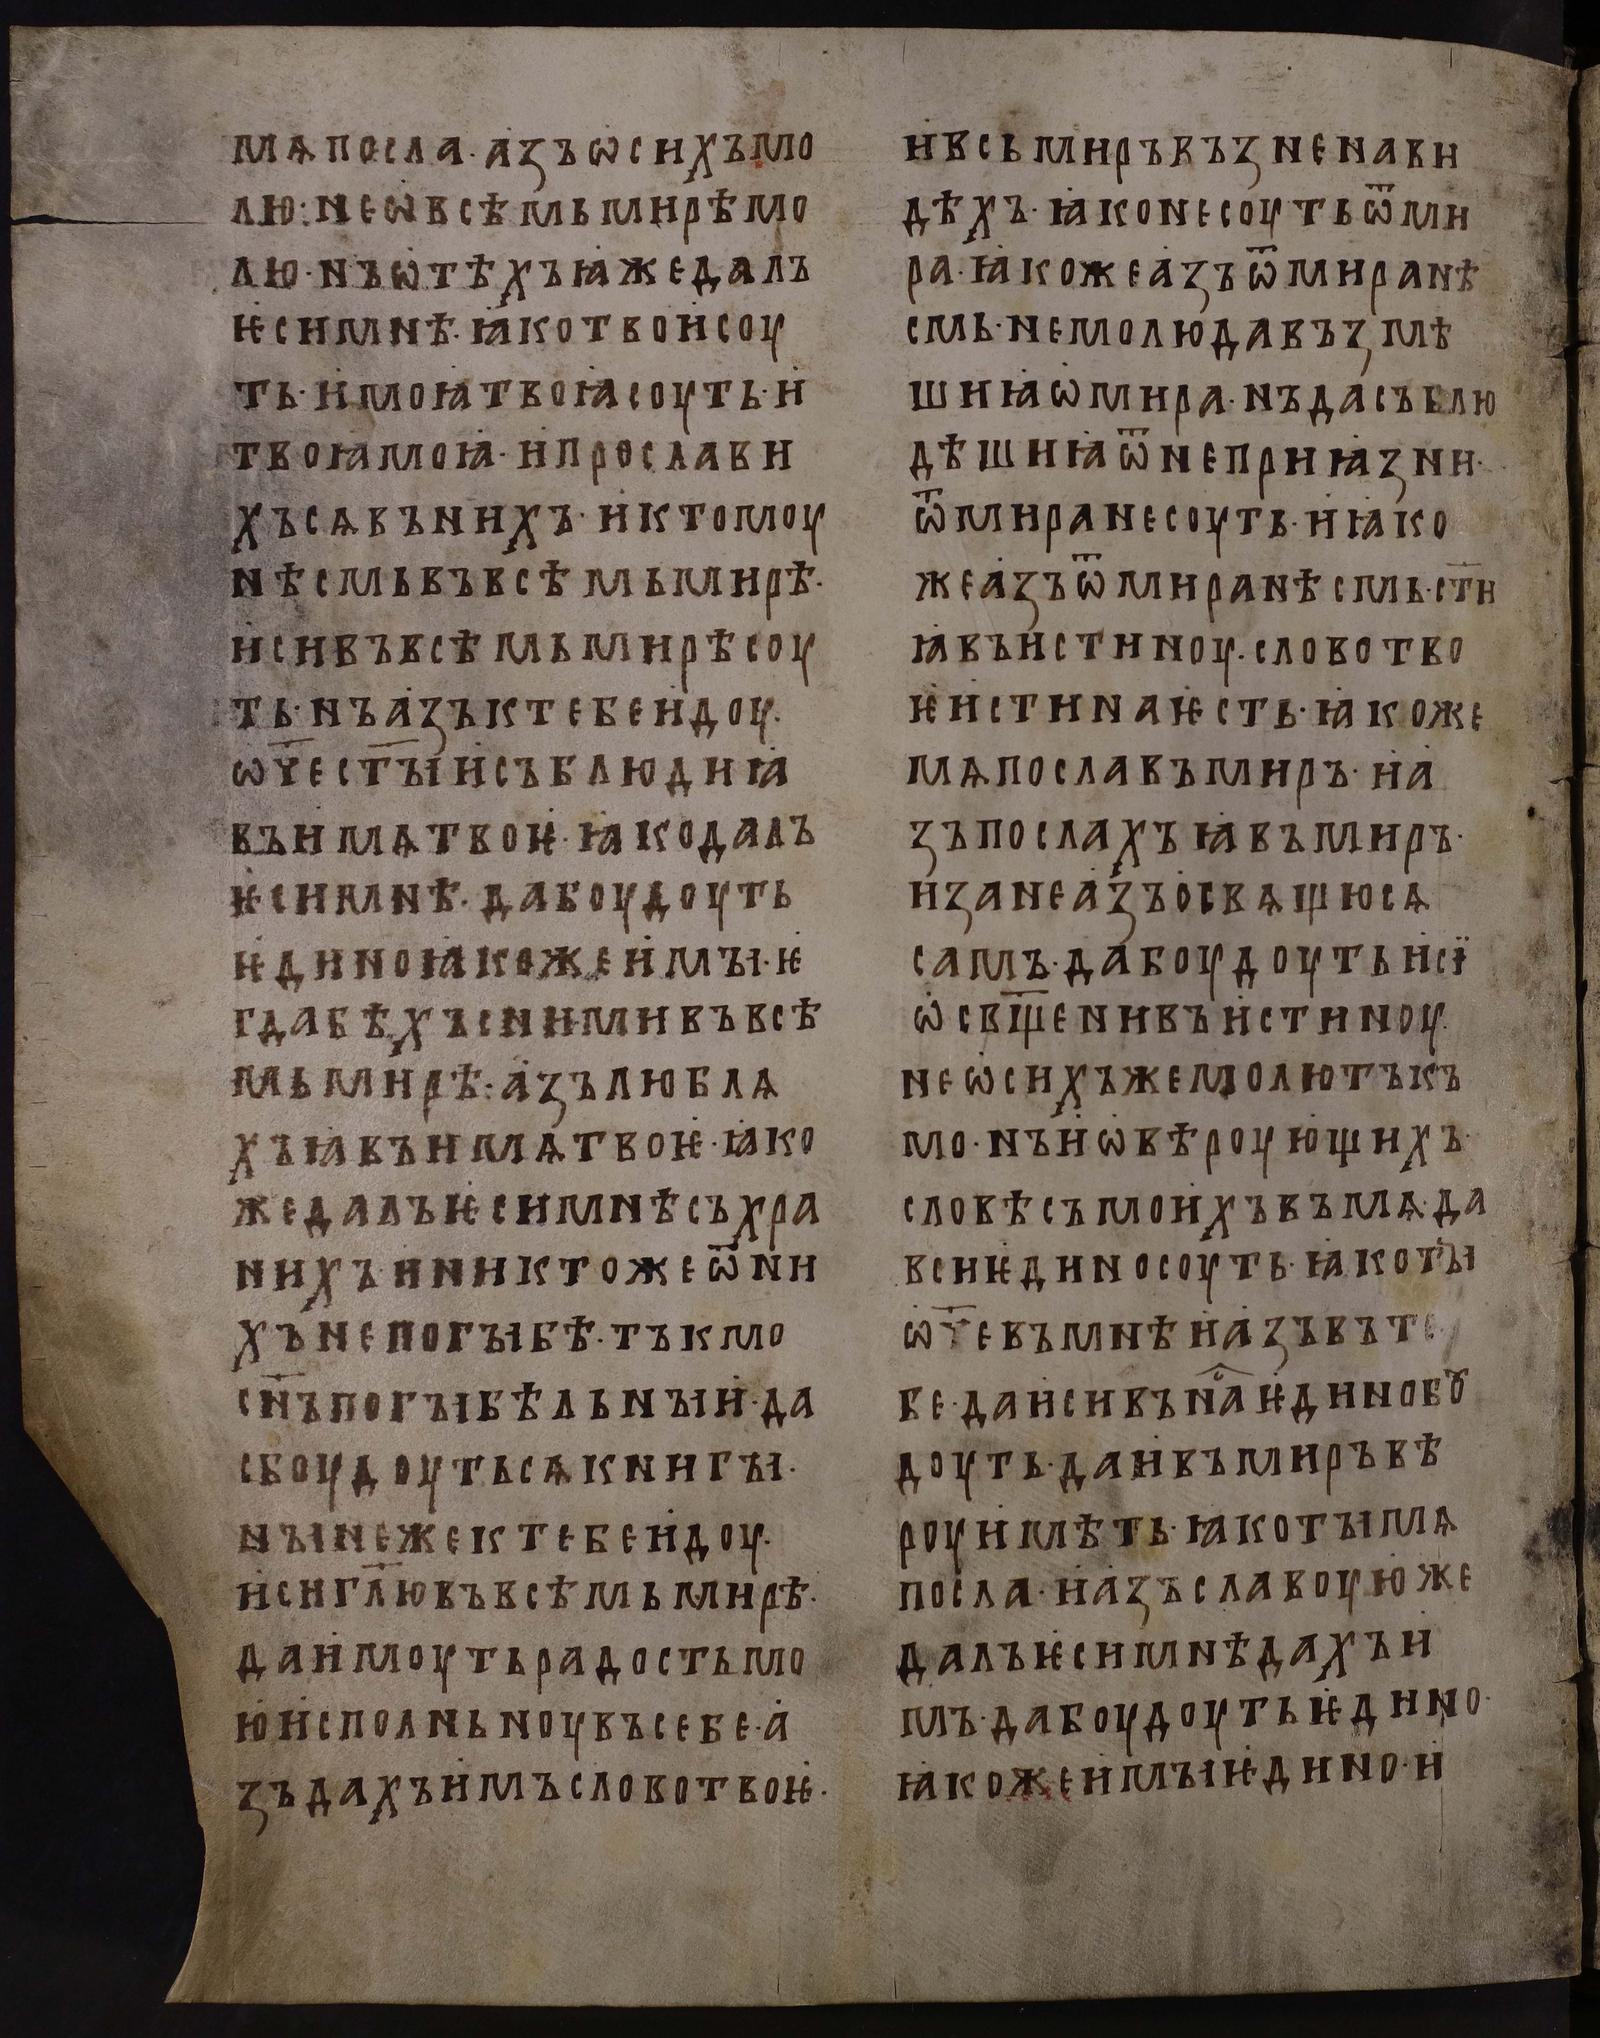 мѧпосла·азъѡсихъмо
лю:неѡвсѣмьмирѣмо
лю·нъѡтѣхъꙗжедалъ
ѥсимнѣ·ꙗкотвоисоу
ть·имоꙗтвоꙗсоуть·и
твоꙗмоꙗ·ипрослави
хъсѧвънихъ·иктомоу
нѣсмьвъвсѣмьмирѣ·
исивъвсѣмьмирѣсоу
ть·нъазъктебеидоу·
ѡч҃ест҃ꙑисъблюдиꙗ
вънмѧтвоѥ·ꙗкодалъ
ѥсимнѣ·дабоудоуть
ѥдиноꙗкожеимꙑ·ѥ
гдабѣхъснимивъвсѣ
мьмирѣ:азълюблѧ
хъꙗвъимѧтвоѥ·ꙗко
жедалъѥсимнѣсъхра
нихъиниктожеѿни
хънепогꙑбѣ·тъкмо
сн҃ъпогꙑбѣльнꙑи·да
сбоудоутьсѧкнигꙑ·
нꙑнежектебеидоу·
исигл҃ювъвсѣмьмирѣ·
даимоутьрадостьмо
юисполньноувъсебе·а
зъдахъимъсловотвоѥ·
ивсьмиръвъзненави
дѣхъ·ꙗконесоутьѿми
ра·ꙗкожеазъѿмиранѣ
смь·немолюдавъзмѣ
шиꙗѡмира·нъдасъблю
дѣшиꙗѿнеприꙗзни·
ѿмиранесоуть·иꙗко
жеазъѿмиранѣсмь·ст҃и
ꙗвъистиноу·словотво
ѥистинаѥсть·ꙗкоже
мѧпославъмиръ·иа
зъпослахъꙗвъмиръ·
изанеазъосвѧщюсѧ
самъ·дабоудоутьисї
ѡсвщ҃енивъистиноу·
неѡсихъжемолютъкъ
мо·нъиѡвѣроующихъ
словѣсъмоихъвъмѧ·да
всиѥдиносоуть·ꙗкотꙑ
ѡч҃евъмнѣиазъвъте
бе·даисивъна̑ѥдинобꙋ
доуть·даивъмиръвѣ
роуимѣть·ꙗкотꙑмѧ
посла·иазъславоуюже
далъѥсимнѣдахъи
мъ·дабоудоутьѥдино·
ꙗкожеимꙑѥдино·и